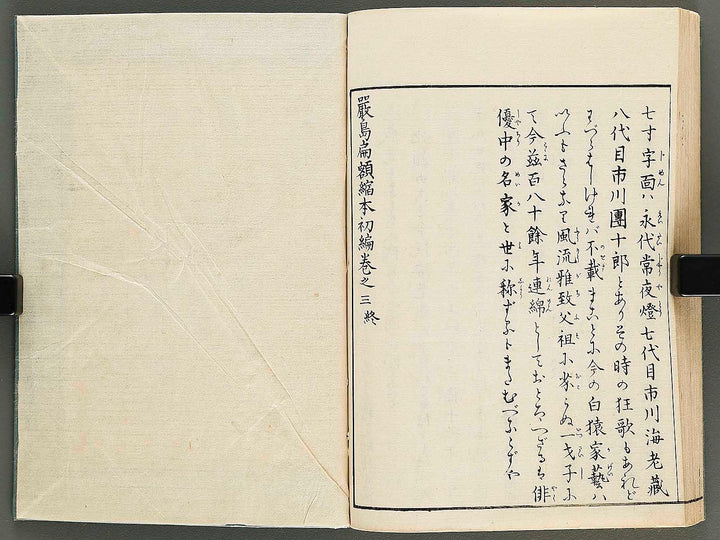 七寸字面ハ永代常夜燈七代目市川海老蔵
八代目市川團十郎とありその時の狂歌もあれど
けれバ不載まことに今の白猿家藝ハ
風流雅致父祖に劣らぬ
て今茲百八十餘年連綿としておとろへざるは俳
優中の名家と世に称ずるもまたむべならずや
嚴島扁額縮本初編巻之三終